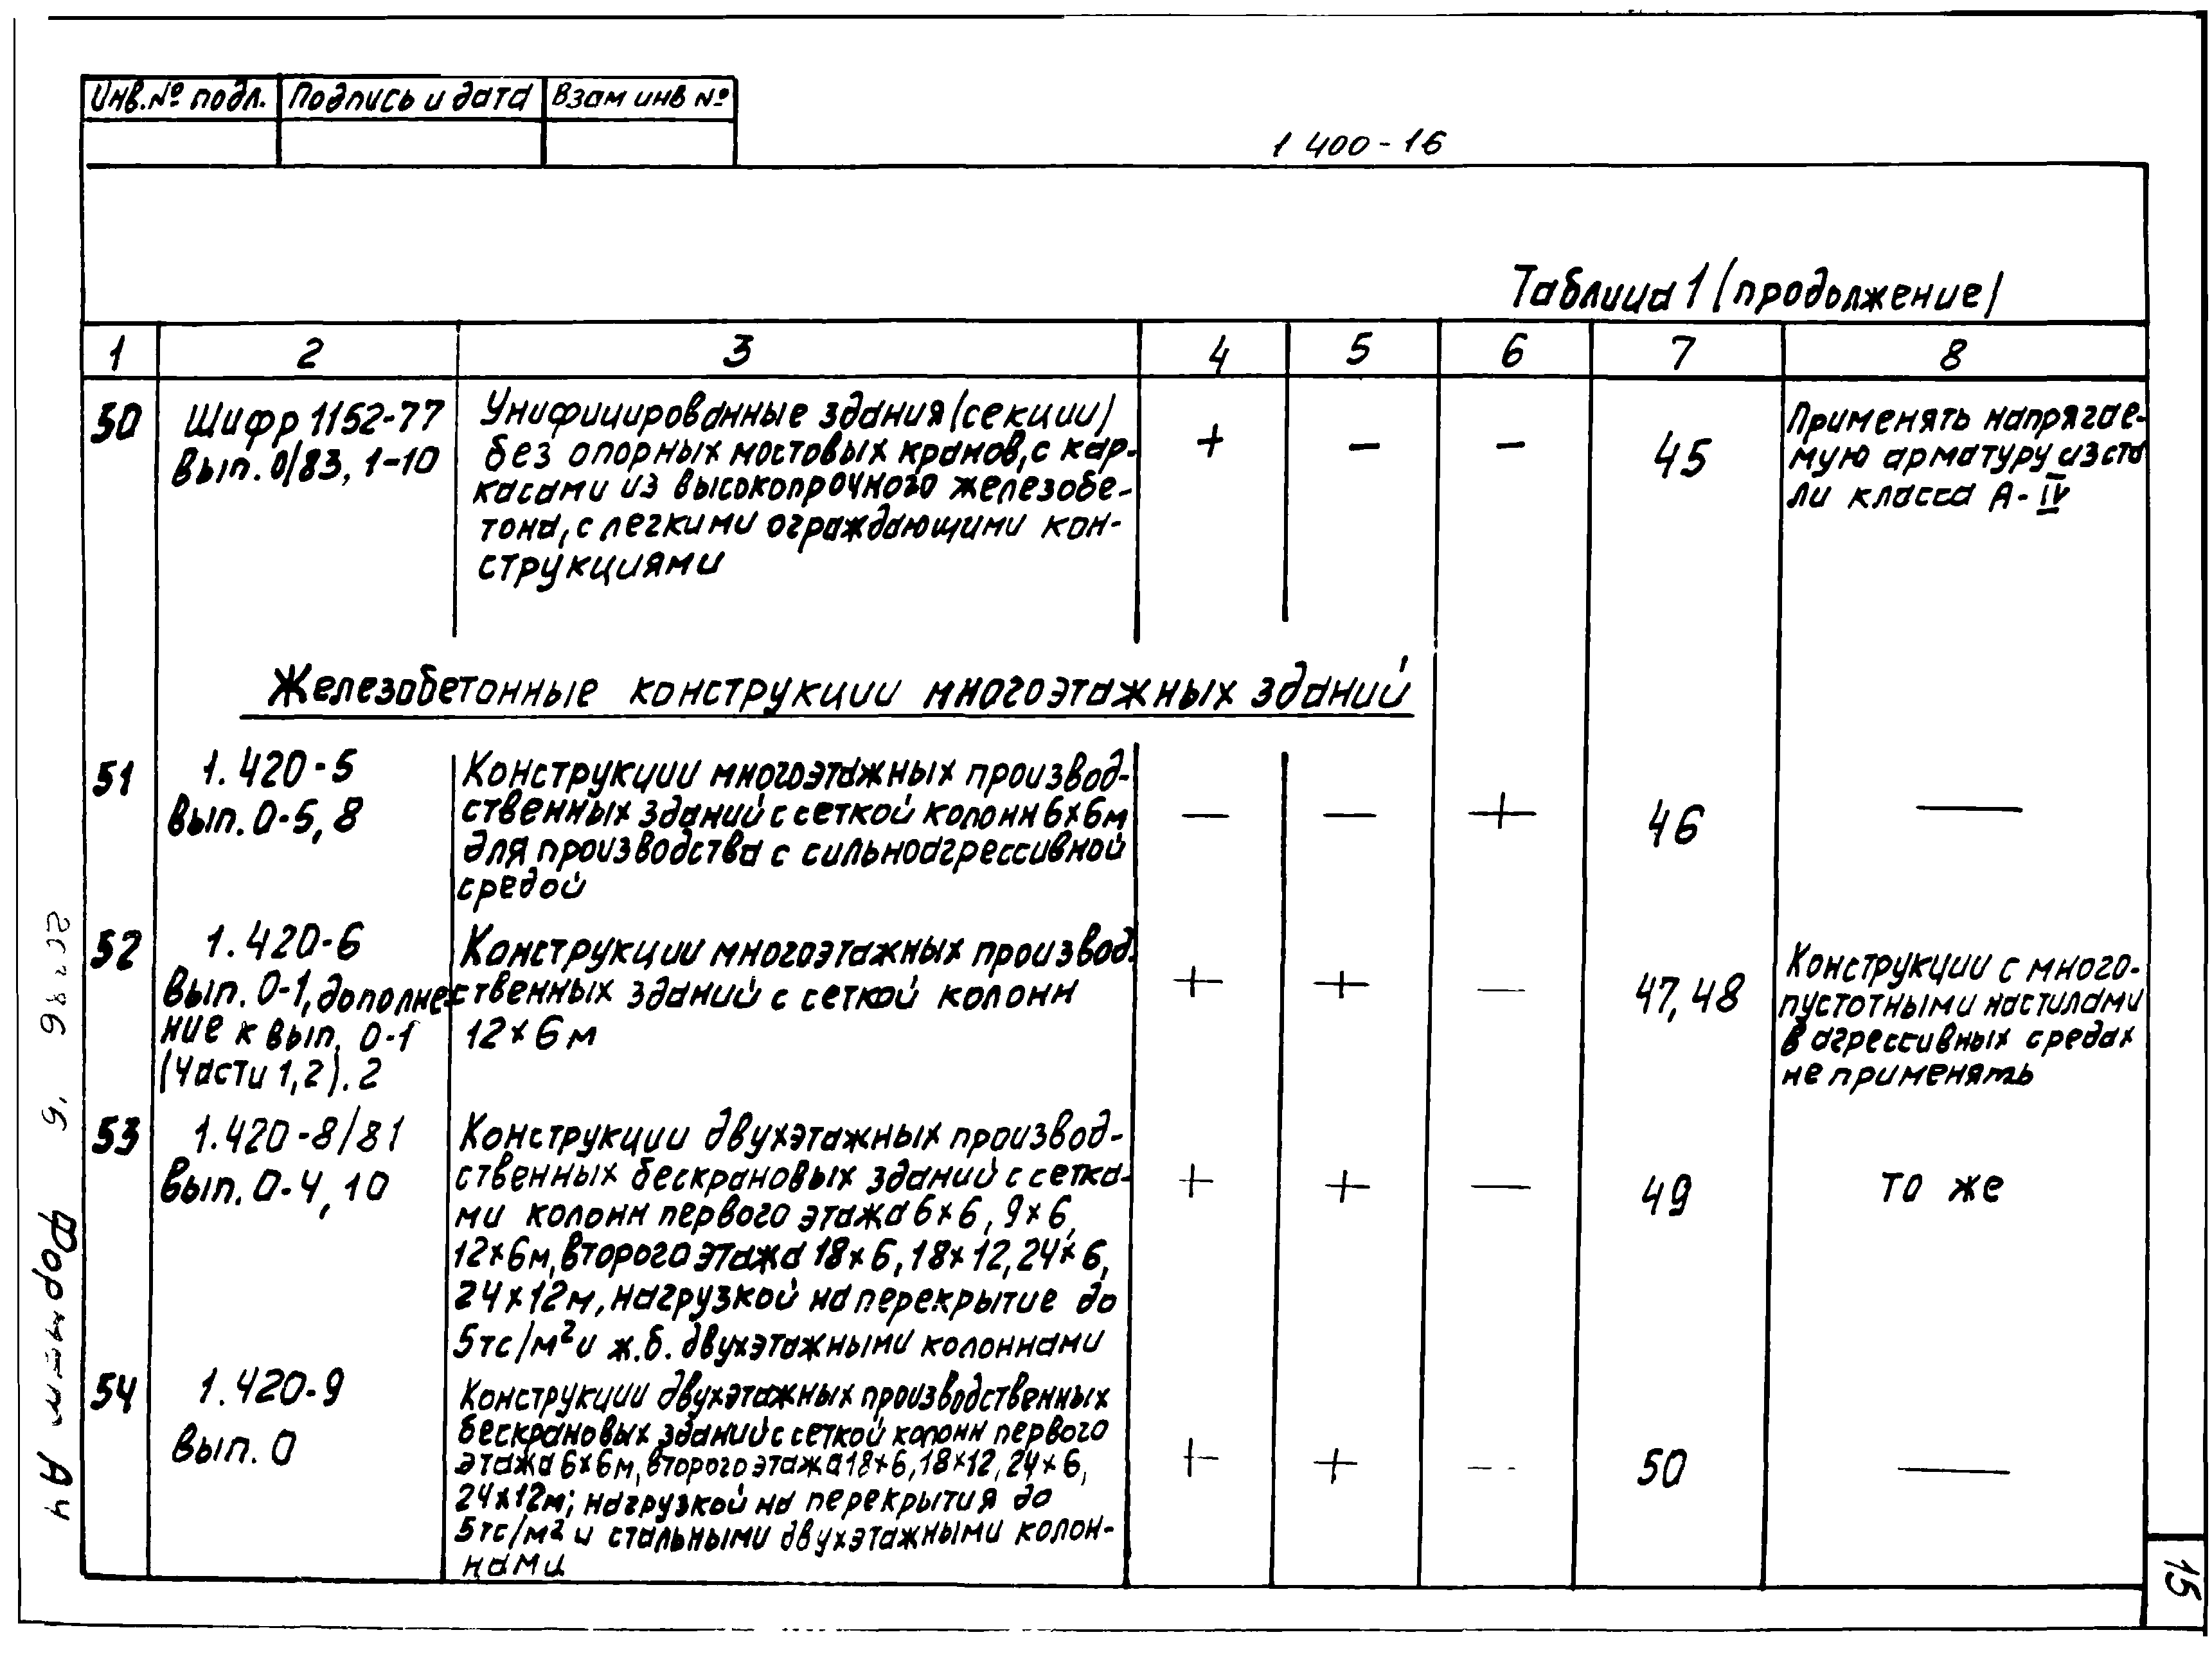 Инв.№ подл. Подпись и дата Взам инв №
1 400-16
Таблица 1 (продолжение)
1 2 3 4 5 6 7 8
50
Шифр 1152-77
вып. 0/83, 1-10
Унифицированные здания (секции)
без опорных мостовых кранов, с кар-
касами из высокопрочного железобе-
тона, с легкими ограждающими кон-
струкциями
+ – – 45
Применять напрягае-
мую арматуру из ста
ли класса А-IV
Железобетонные конструкции многоэтажных зданий
51
1.420-5
Вып. 0-5, 8
Конструкции многоэтажных производ-
ственных зданий с сеткой колонн 6х6м
для производства с сильноагрессивной
средой
— — + 46 —
52
1.420-6
Вып. 0-1, дополне-
ние к вып. 0-1
(Части 1,2). 2
Конструкции многоэтажных производ-
ственных зданий с сеткой колонн
12х6 м
+ + — 47, 48
Конструкции с много-
пустотными настилами
в агрессивных средах
не применять
53
1.420-8/81
Вып. 0-4, 10
Конструкции двухэтажных производ-
ственных бескрановых зданий с сетка-
ми колонн первого этажа 6х6, 9х6,
12х6м, второго этажа 18х6, 18х12, 24х6,
24х12м, нагрузкой на перекрытие до
5тс/м² и ж.б. двухэтажными колоннами
+ + — 49 То же
54
1.420-9
Вып. 0
Конструкции двухэтажных производственных
бескрановых зданий с сеткой колонн первого
этажа 6х6м, второго этажа 18х6, 18х12, 24х6,
24х12м; нагрузкой на перекрытия до
5тс/м² и стальными двухэтажными колон-
нами
+ + -- 50 —
15
Формат А4